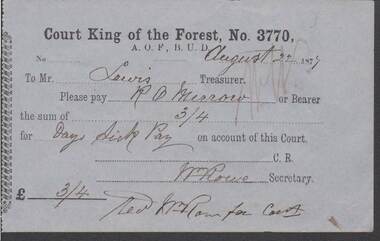 Court King of the Forest, No. 3770,
A. O. F., B. U. D.
No August 22 1877
To Mr. Lewis Treasurer.
Please pay R O Merrow or Bearer
the sum of 3/4
for Days Sick Pay on account of this Court.
C. R.
Wm Rowe Secretary.
£ 3/4
Recd Wm Rowe for Court